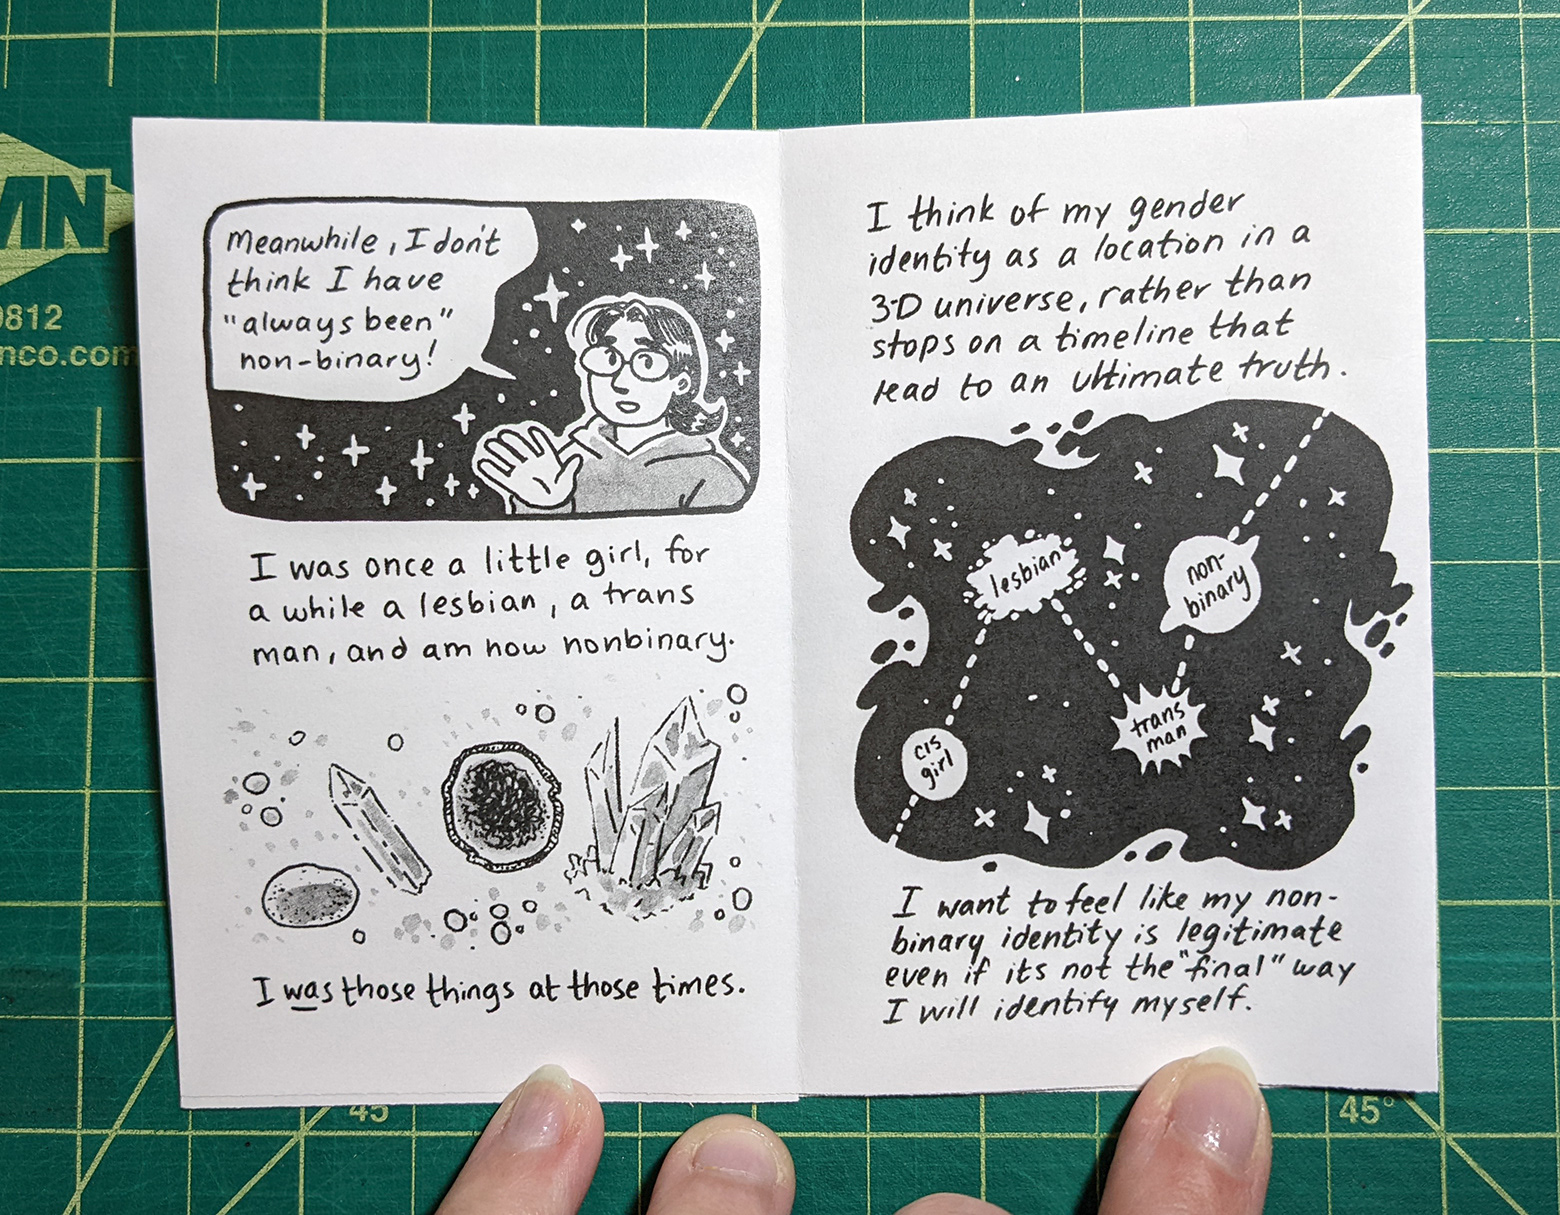 Meanwhile, I don't
think I have
"always been"
non-binary!
I was once a little girl, for
a while a lesbian, a trans
man, and am now nonbinary.
I was those things at those times.
I think of my gender
identity as a location in a
3-D universe, rather than
stops on a timeline that
lead to an ultimate truth.
lesbian
non-
binary
trans
man
cis
girl
I want to feel like my non-
binary identity is legitimate
even if its not the "final" way
I will identify myself.
9812
nco.com
45
45°